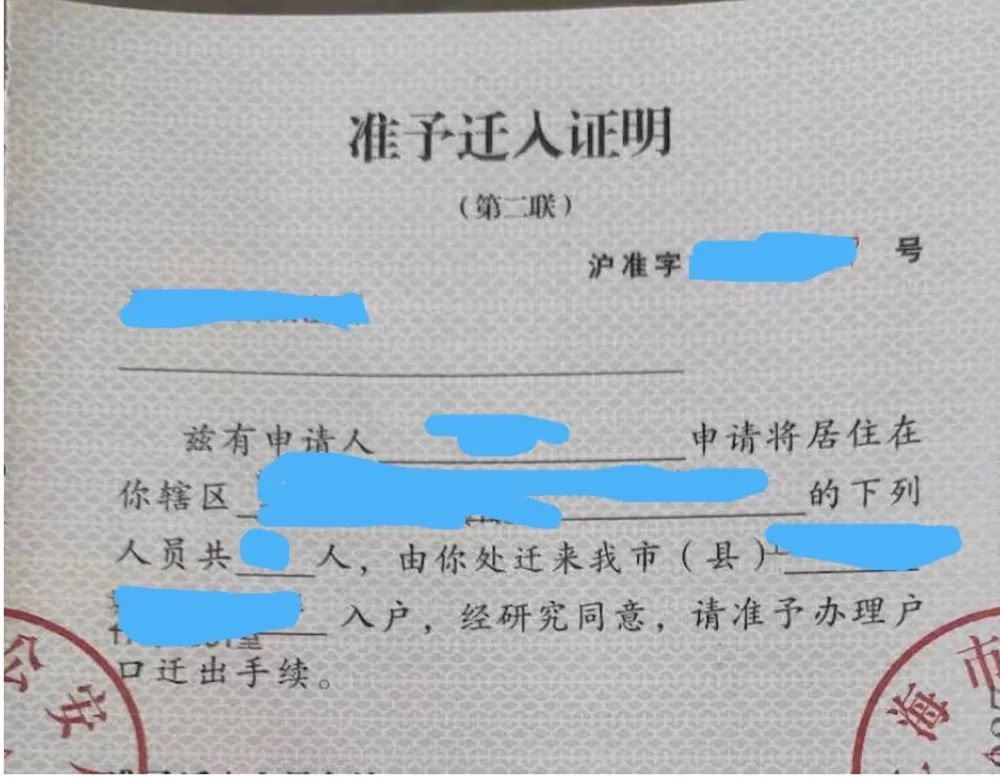 准予迁入证明
（第二联）
沪准字 号
兹有申请人 申请将居住在
你辖区 的下列
人员共 人，由你处迁来我市（县）
入户，经研究同意，请准予办理户
口迁出手续。
公安
海市